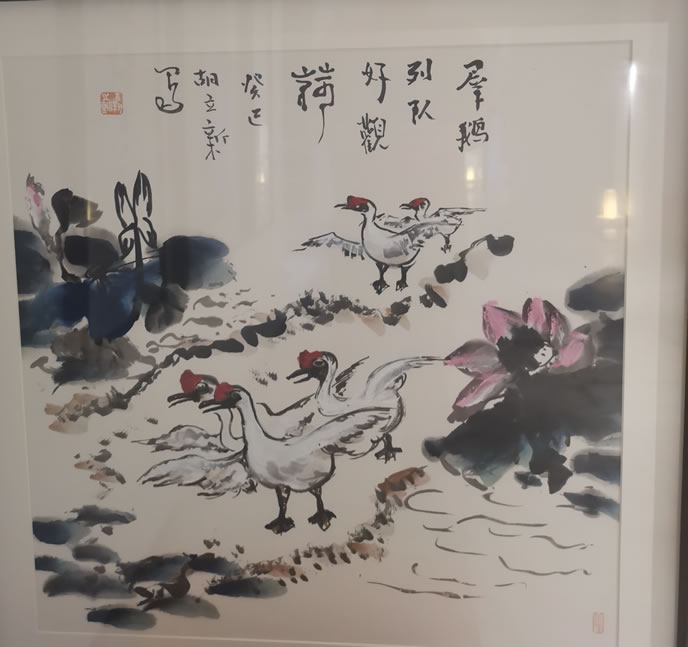 群鹅
列队
好觀
荷
癸巳
胡立新
写